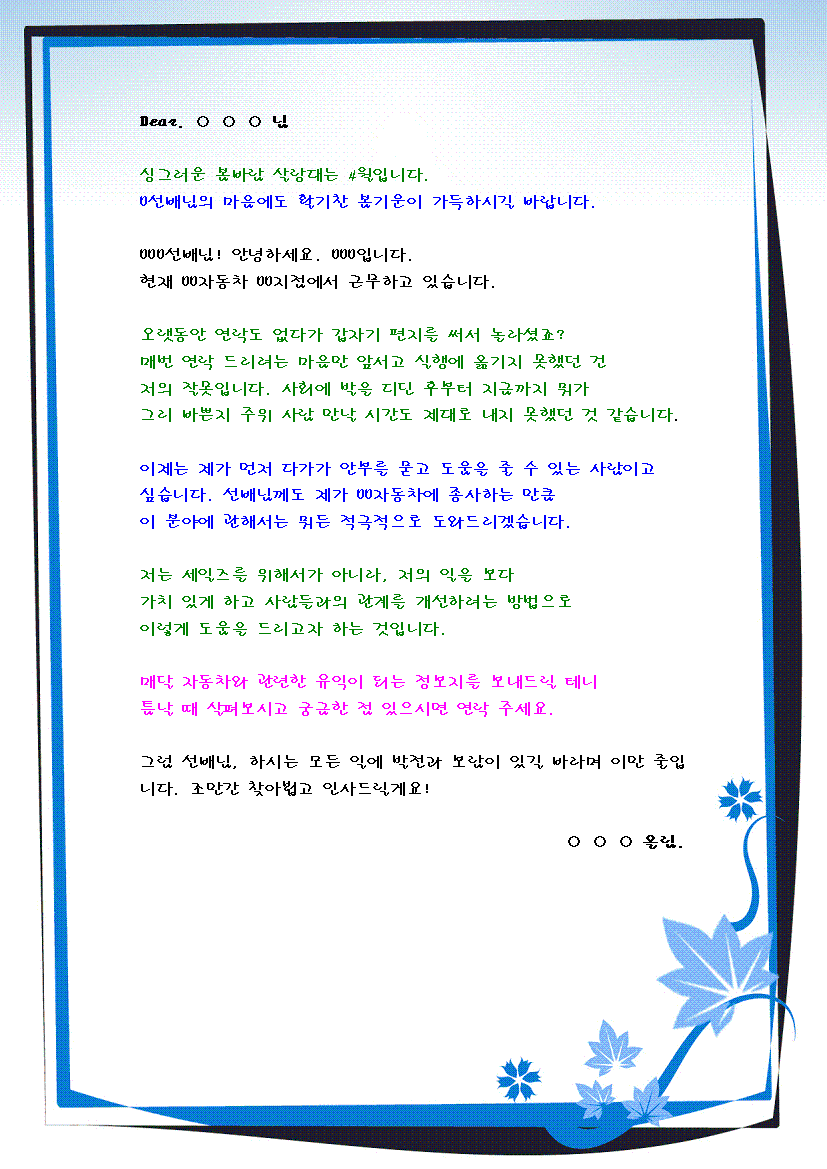 Dear. ○ ○ ○ 님
싱그러운 봄바람 살랑대는 #월입니다.
0선배님의 마음에도 활기찬 봄기운이 가득하시길 바랍니다.
000선배님! 안녕하세요. 000입니다.
현재 00자동차 00지점에서 근무하고 있습니다.
오랫동안 연락도 없다가 갑자기 편지를 써서 놀라셨죠?
매번 연락 드리려는 마음만 앞서고 실행에 옮기지 못했던 건
저의 잘못입니다. 사회에 발을 디딘 후부터 지금까지 뭐가
그리 바쁜지 주위 사람 만날 시간도 제대로 내지 못했던 것 같습니다.
이제는 제가 먼저 다가가 안부를 묻고 도움을 줄 수 있는 사람이고
싶습니다. 선배님께도 제가 00자동차에 종사하는 만큼
이 분야에 관해서는 뭐든 적극적으로 도와드리겠습니다.
저는 세일즈를 위해서가 아니라, 저의 일을 보다
가치 있게 하고 사람들과의 관계를 개선하려는 방법으로
이렇게 도움을 드리고자 하는 것입니다.
매달 자동차와 관련한 유익이 되는 정보지를 보내드릴 테니
틈날 때 살펴보시고 궁금한 점 있으시면 연락 주세요.
그럼 선배님, 하시는 모든 일에 발전과 보람이 있길 바라며 이만 줄입
니다. 조만간 찾아뵙고 인사드릴게요!
○ ○ ○ 올림.